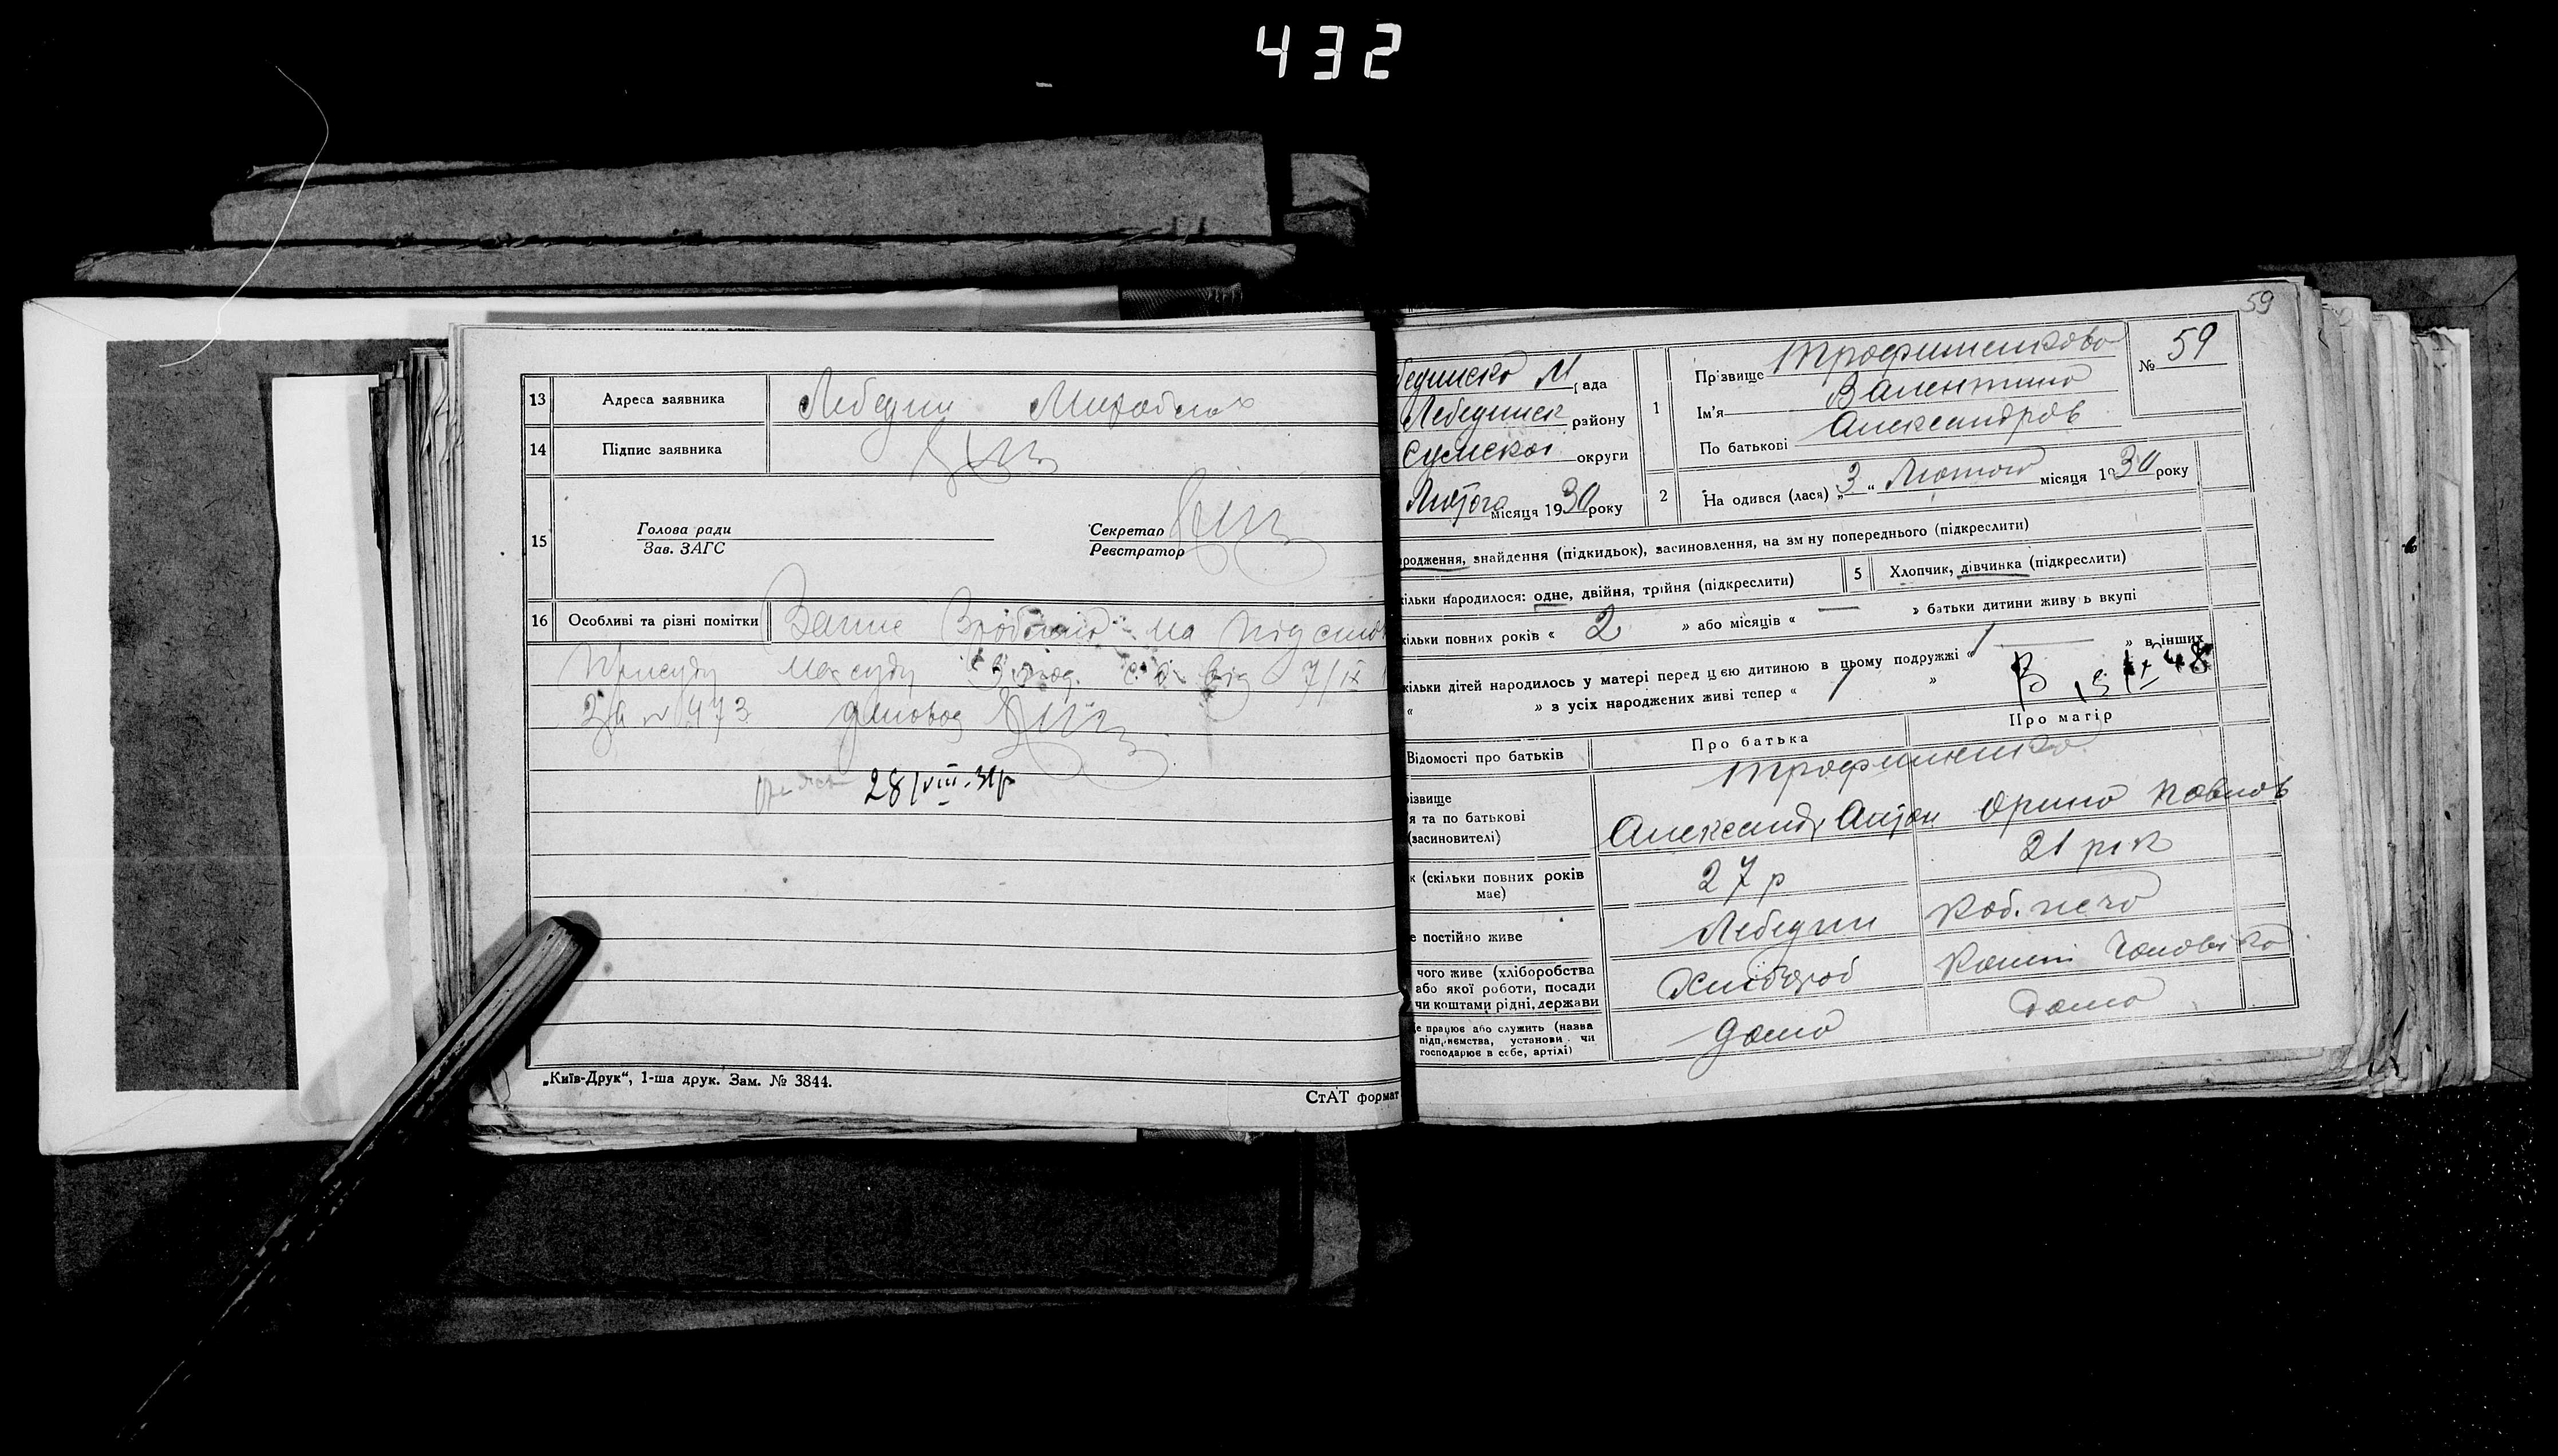 432
13 Адреса заявника Лебедин
14 Підпис заявника
15 Голова ради
Зав. ЗАГС
Секретар
Реєстратор
16 Особливі та різні помітки Запис на підстав
Присуду від 7/IX
за № 473 діловод
28/VIII-31р
„Київ-Друк“, 1-ша друк. Зам. № 3844.
СтАТ формат
59
бединско М рада
Лебединск району
Сумскої округи
Лютого місяця 1930 року
1 Прізвище Трофименкова
Ім'я Валентина
По батькові Александров
№ 59
2 Народився (лася) „3“ Лютого місяця 1930 року
родження, знайдення (підкидьок), засиновлення, на зміну попереднього (підкреслити)
кільки народилося: одне, двійня, трійня (підкреслити)
5 Хлопчик, дівчинка (підкреслити)
кільки повних років « 2 » або місяців « — » батьки дитини живуть вкупі
кільки дітей народилось у матері перед цією дитиною в цьому подружжі « 1 » в інших
« » з усіх народжених живі тепер « 1 »
Відомості про батьків
Про батька
Про матір
різвище
я та по батькові
(засиновителі)
Трофименко
Александр Антон
Орина Павлов
к (скільки повних років має)
27 р
21 рік
е постійно живе
Лебедин
чого живе (хліборобства
або якої роботи, посади
чи коштами рідні, держави
Хлібороб
Кошти Чоловіка
е працює або служить (назва
підприємства, установи чи
господарює в себе, артілі)
дома
дома